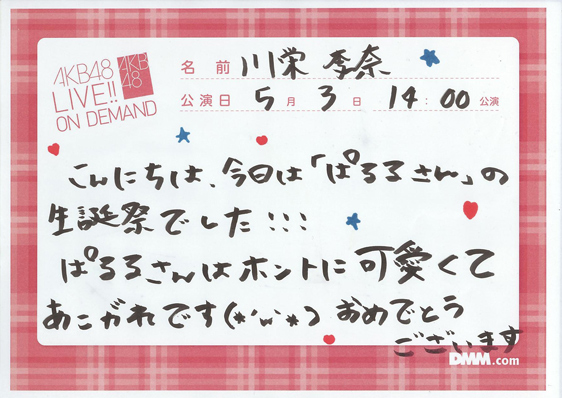 AKB48
LIVE!!
ON DEMAND
AKB
48
名前 川栄 李奈
公演日 5月3日 14:00公演
こんにちは、今日は「ぱるるさん」の
生誕祭でした!!!
ぱるるさんはホントに可愛くて
あこがれです(*'ω'*) おめでとう
ございます
DMM.com